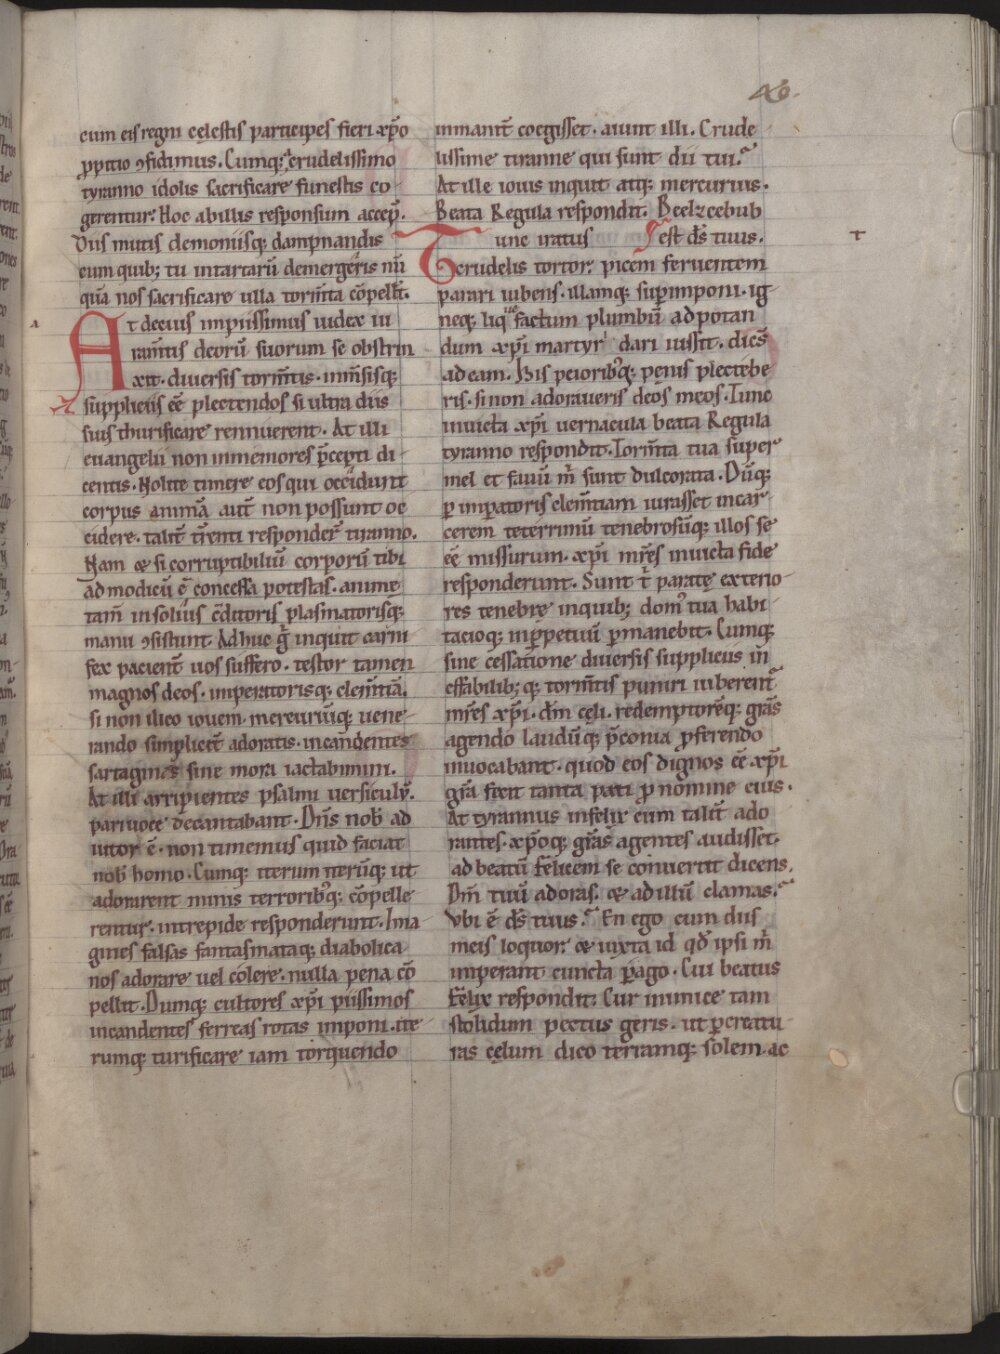 46.
cum eis regni cęlestis participes fieri xp̄o
ꝓpitio ꝯfidimus. Cumq; crudelissimo
tyranno idolis sacrificare funestis co-
gerentur. Hoc ab illis responsum accep̄.
Diis mutis demoniisq; dampnandis
cum quib; tu in tartarū demergeris nū
quā nos sacrificare ulla torm̄ta cōpell̄t.
a
At decius impiissimus iudex iu
ram̄tis deorū suorum se obstrin
xit. diuersis torm̄tis. inm̄sisq;
suppliciis eē plectendos si ultra diis
suis thurificare rennuerent. At illi
euangelii non inmemores p̄cepti di-
centis. Nolite timere eos qui occidunt
corpus animā aut̄ non possunt oc
cidere. talit̄ tr̄enti responder̄ tiranno.
Nam & si corruptibiliū corporū tibi
ad modicū ē concessa potestas. anime
tam̄ in solius c̄ditoris plasmatorisq;
manu ꝯsistunt. Adhuc g̊ inquit carni
fex pacient̄ uos suffero. testor tamen
magnos deos. imperatorisq; clem̄tiā.
si non ilico iouem. mercuriūq; uene-
rando simplicit̄ adoratis. incandentes
sartagines sine mora iactabimini.
At illi arripientes psalmi uersiculū.
pari uoce decantabant. Dn̄s nob̄ ad
iutor ē. non timemus quid faciat
nob̄ homo. Cumq; iterum iterūq; ut
adorarent minis terroribꝰq; cōpelle-
rentur. intrepide responderunt. Ima-
gines falsas fantasmataq; diabolica
nos adorare uel colere. nulla pena cō
pellit. Dumq; cultores xp̄i piissimos
incandentes ferreas rotas imponi. ite-
rumq; turificare iam torquendo
inmanit̄ coegisset. aiunt illi. Crude-
lissime tiranne qui sunt dii tui.
At ille iouis inquit atq; mercurius.
Beata Regula respondit. Beelzcebub
Tunc iratus est d̄s tuus.
t
crudelis tortor. picem feruentem
parari iubens. illamq; sup̄imponi. ig-
neq; liq̅facͭum plumbū ad potan
dum xp̄i martyr dari iussit. dicēs
ad eam. His peioribꝰq; pęnis plectebe-
ris. si non adoraueris deos meos. Tunc
inuicta xp̄i uernacula beata Regula
tyranno respondit. Torm̄ta tua super
mel et fauū m̄ sunt dulcorata. Dūq;
p imp̄atoris clem̄tiam iurasset in car-
cerem teterrimū tenebrosūq; illos se
eē missurum. xp̄i mr̄es inuicta fide
responderunt. Sunt t̄ paratę exterio-
res tenebrę in quib; domꝰ tua habi-
tacioq; inp̄petuū p̄manebit. Cumq;
sine cessatione diuersis suppliciis in
effabilib;q; torm̄tis puniri iuberent̄
mr̄es xp̄i. dn̄m cęli. redemptorēq; gr̄as
agendo laudūq; p̄conia ꝓferendo
inuocabant. quod eos dignos eē xp̄i
gr̄a fecit tanta pati ꝓ nomine eius.
At tyrannus infelix cum talit̄ ado
rantes. xp̄oq; gr̄as agentes audisset.
ad beatū Felicem se conuertit dicens.
Dn̄m tuū adoras. & ad illū clamas.
Vbi ē d̄s tuus. En ego cum diis
meis loquor. & iuxta id qđ ipsi m̄
imperant cuncta p̄ago. Cui beatus
Felix respondit. Cur inimice tam
stolidum pectus geris. ut p creatu-
ras cęlum dico terramq; solem. ac